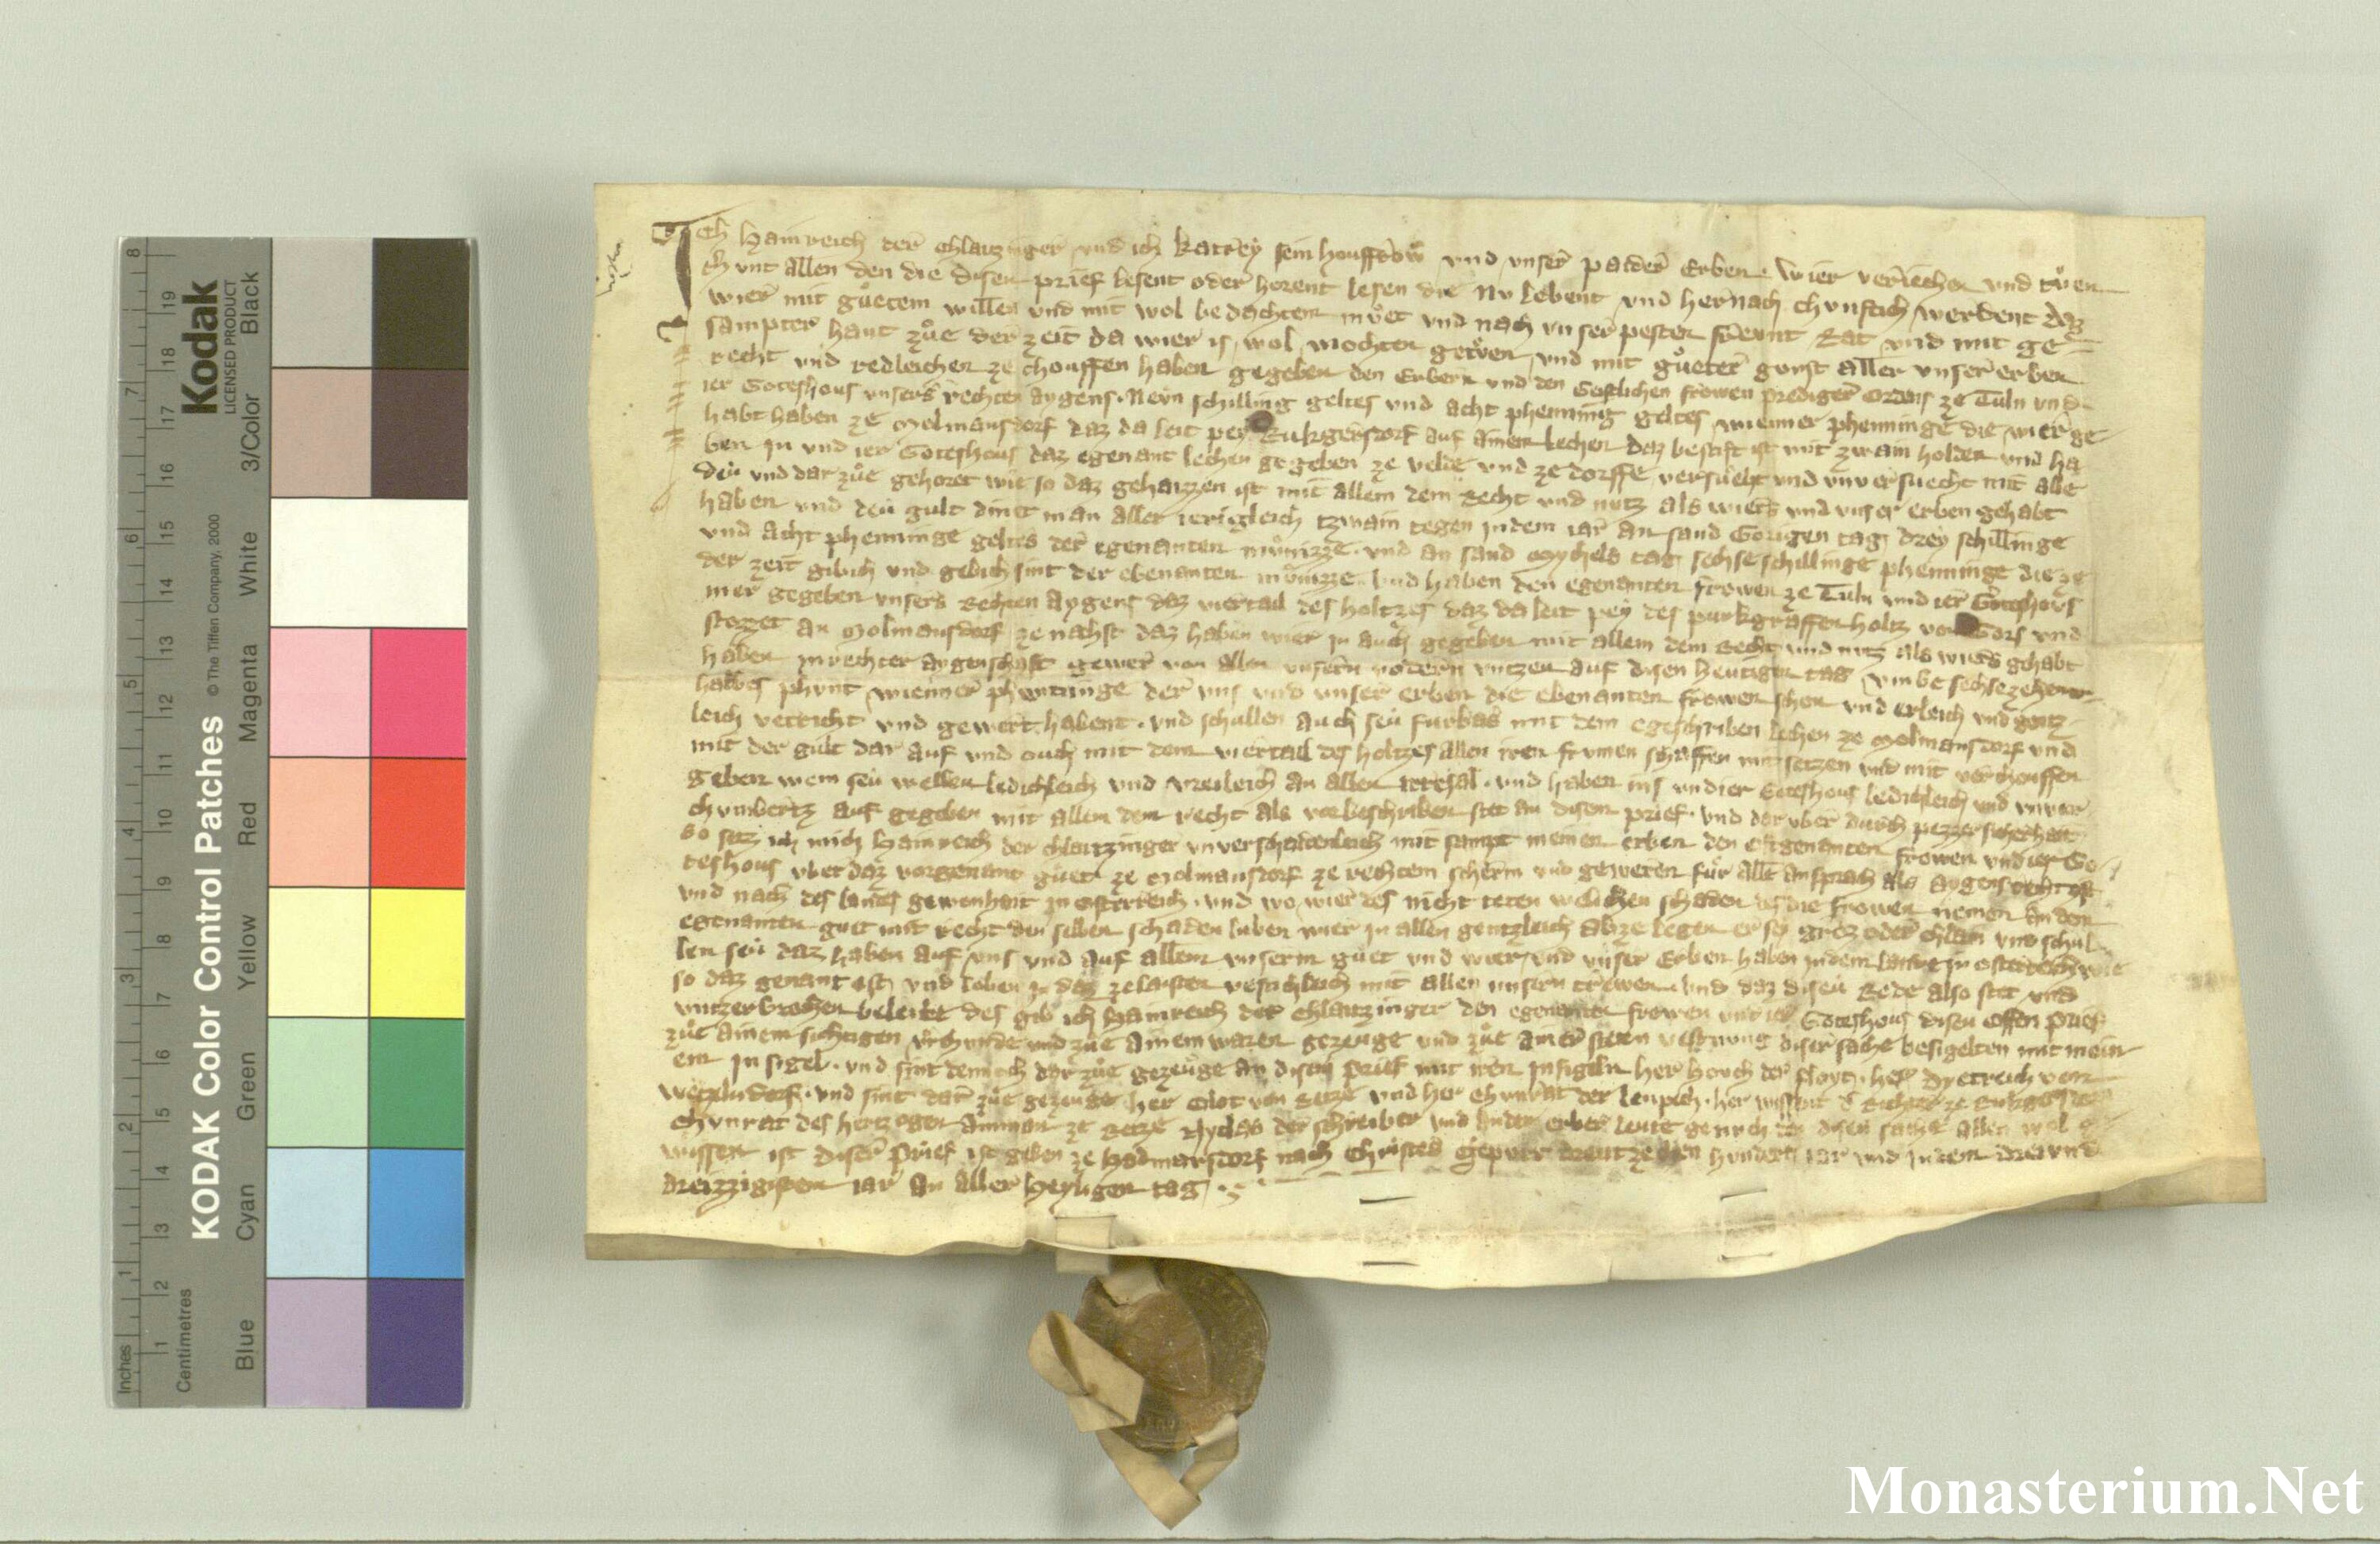 Ich Hainreich der Chlaitzinger vnd ich Katrey sein housfrow vnd vnser paider Erben. Wier veriechen vnd tůen
chunt allen den die disen prief lesent oder horent lesen die Nv lebent vnd hernach chunftich werdent daz
wier mit gůetem willen vnd mit wol bedachtem můet vnd nach vnser pesten frewnt Rat vnd mit ge
sampter hant zůe der zeit da wier is wol mochten getůen vnd mit gůeter gunst aller vnser erben
recht vnd redleichen ze chouffen haben gegeben den Erbern vnd den Geistlichen frowen prediger Ordens ze Tuln vnd
ier Goteshous vnsers rechten aygens. Nevn schilling geltes vnd acht phenning geltes wienner phenninge die wier ge
habt haben ze Molmansdorf daz da leit pey Rukgerstorf auf ainem lechen daz bestift ist mit zwain holden vnd ha
ben in vnd ier Goteshous daz egenant lechen gegeben ze velde vnd ze dorffe versuecht vnd vnversuecht mit alle
deu vnd dar zůe gehoret wie so daz gehaizzen ist mit allem dem Recht vnd nutz als wiers vnd vnser erben gehabt
haben vnd deu gult dint man aller ierigleich tzwain tegen in dem iar an sand Gorigen tag drey schillinge
vnd acht phenninge geltes der egenanten můnizze. vnd an sand Mychels tag sechse schillinge phenninge die ze
der zeit gibich vnd gebich sint der ebenanten můnizze. vnd haben den egenanten frowen ze Tuln vnd ier Goteshous
mer gegeben vnsers Rechten Aygens daz viertail des holtzes daz da leit pey des purkgraffen holtz von Gors vnd
stozzet an Molmansdorf ze nachst daz haben wier in auch gegeben mit allem dem Recht vnd nutz als wiers gehabt
haben in rechter aygenschaft gewer von allen vnsern vodern vntzen auf disen heutigen tag vmbe sechsezehent
halbes phunt wienner phenninge der vns vnd vnser erben die ebenanten frowen schon vnd erleich vnd gentz
leich verricht vnd gewert habent. vnd schullen auch seu furbas mit dem egeschriben lechen ze Molmansdorf vnd
mit der gult dar auf vnd ouch mit dem viertail des holtzes allen iren frumen schaffen mit setzen vnd mit verchouffen
geben wem seu wellen ledichleich vnd vreileich an allen irrsal. vnd haben ins vnd ier Goteshous ledichleich vnd vnver
chumbertz auf gegeben mit allem dem recht als vorbeschriben stet an disem prief. vnd dar vber durch pezzer sicherhait
So setz ich mich Hainreich der Chlaitzinger vnverschaidenleich mit sampt meinen erben den oftgenanten frowen vnd ier Go
teshous vber daz vorgenant guet ze Molmansdorf ze rechtem scherm vnd geweren fůr alle ansprach als aygens recht ist
vnd nach des landes gewonhait in Osterreich. vnd wo wier des nicht teten welichen schaden des die frowen nemen an dem
egenanten guet mit recht den selben schaden luben wier in allen gentzleich abzelegen er sey groz oder chlain vnd schul
len seu daz haben auf vns vnd auf allem vnserm guet vnd wier vnd vnser Erben haben in dem lande in Osterreich wie
so daz genant ist vnd loben in daz ze laisten vestichleich mit allen vnsern trewen. vnd daz disev Rede also stet vnd
vnzerbrochen beleibe des gib ich Hainreich der Chlaitzinger den egenanten frowen vnd ier Goteshous disen offen prief
zůe ainem sichtigen vrchunde vnd zůe ainem waren gezeuge vnd zůe ainer steten vestnung diser sache besigelten mit mein
em insigel. vnd sint dennoch dar zůe gezeuge an disem prief mit iren insigeln her Houch der Floyt. her Dyetreich von
Wetzelndorf. vnd sint dar zůe gezeuge her Olot von Retze vnd her Chunrat der Leupch. her der Richter ze
Chunrat des hertzogen Amman ze Retze Nyclas der schreiber vnd ander erber leute genuch den diseu sache allen wol ge
wissen ist Diser prief ist geben ze Hadmarstorf nach Christes gepurt dreutzehen hundert iar vnd in dem drev vnd
dreizzigistem iar an aller Heyligen tag.
KODAK Color Control Patches
© The Tiffen Company, 2000
Kodak
LICENSED PRODUCT
Inches
Centimetres
Blue Cyan Green Yellow Red Magenta White 3/Color Black
Monasterium.Net